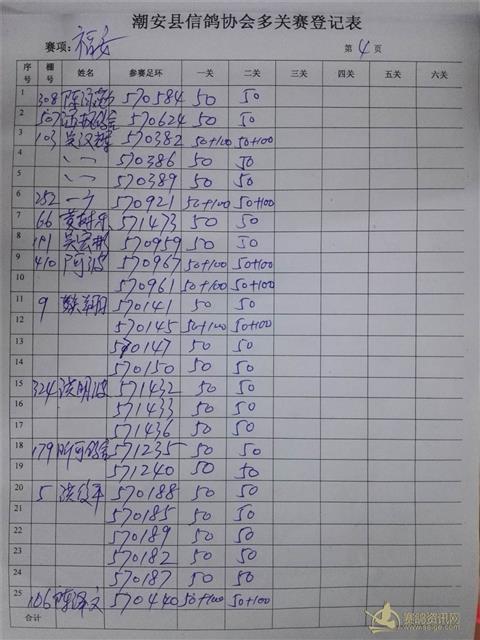 潮安县信鸽协会多关赛登记表
赛项: 福安 第 4 页
序号 棚号 姓名 参赛足环 一关 二关 三关 四关 五关 六关
1 308 570584 50 50
2 507 570624 50 50
3 103 570382 50+100 50+100
4 570386 50 50
5 570389 50 50
6 282 570921 50+100 50+100
7 66 黄树 571473 50 50
8 191 吴宏彬 570959 50 50
9 410 阿波 570967 50+100 50+100
10 570961 50+100 50+100
11 9 570141 50 50
12 570145 50+100 50+100
13 570147 50 50
14 570150 50 50
15 324 洪明波 571432 50 50
16 571433 50 50
17 571436 50 50
18 179 571235 50 50
19 571240 50 50
20 5 洪俊平 570188 50 50
21 570185 50 50
22 570189 50 50
23 570182 50 50
24 570187 50 50
25 106 570440 50+100 50+100
合计
赛鸽资讯网
www.saige.com